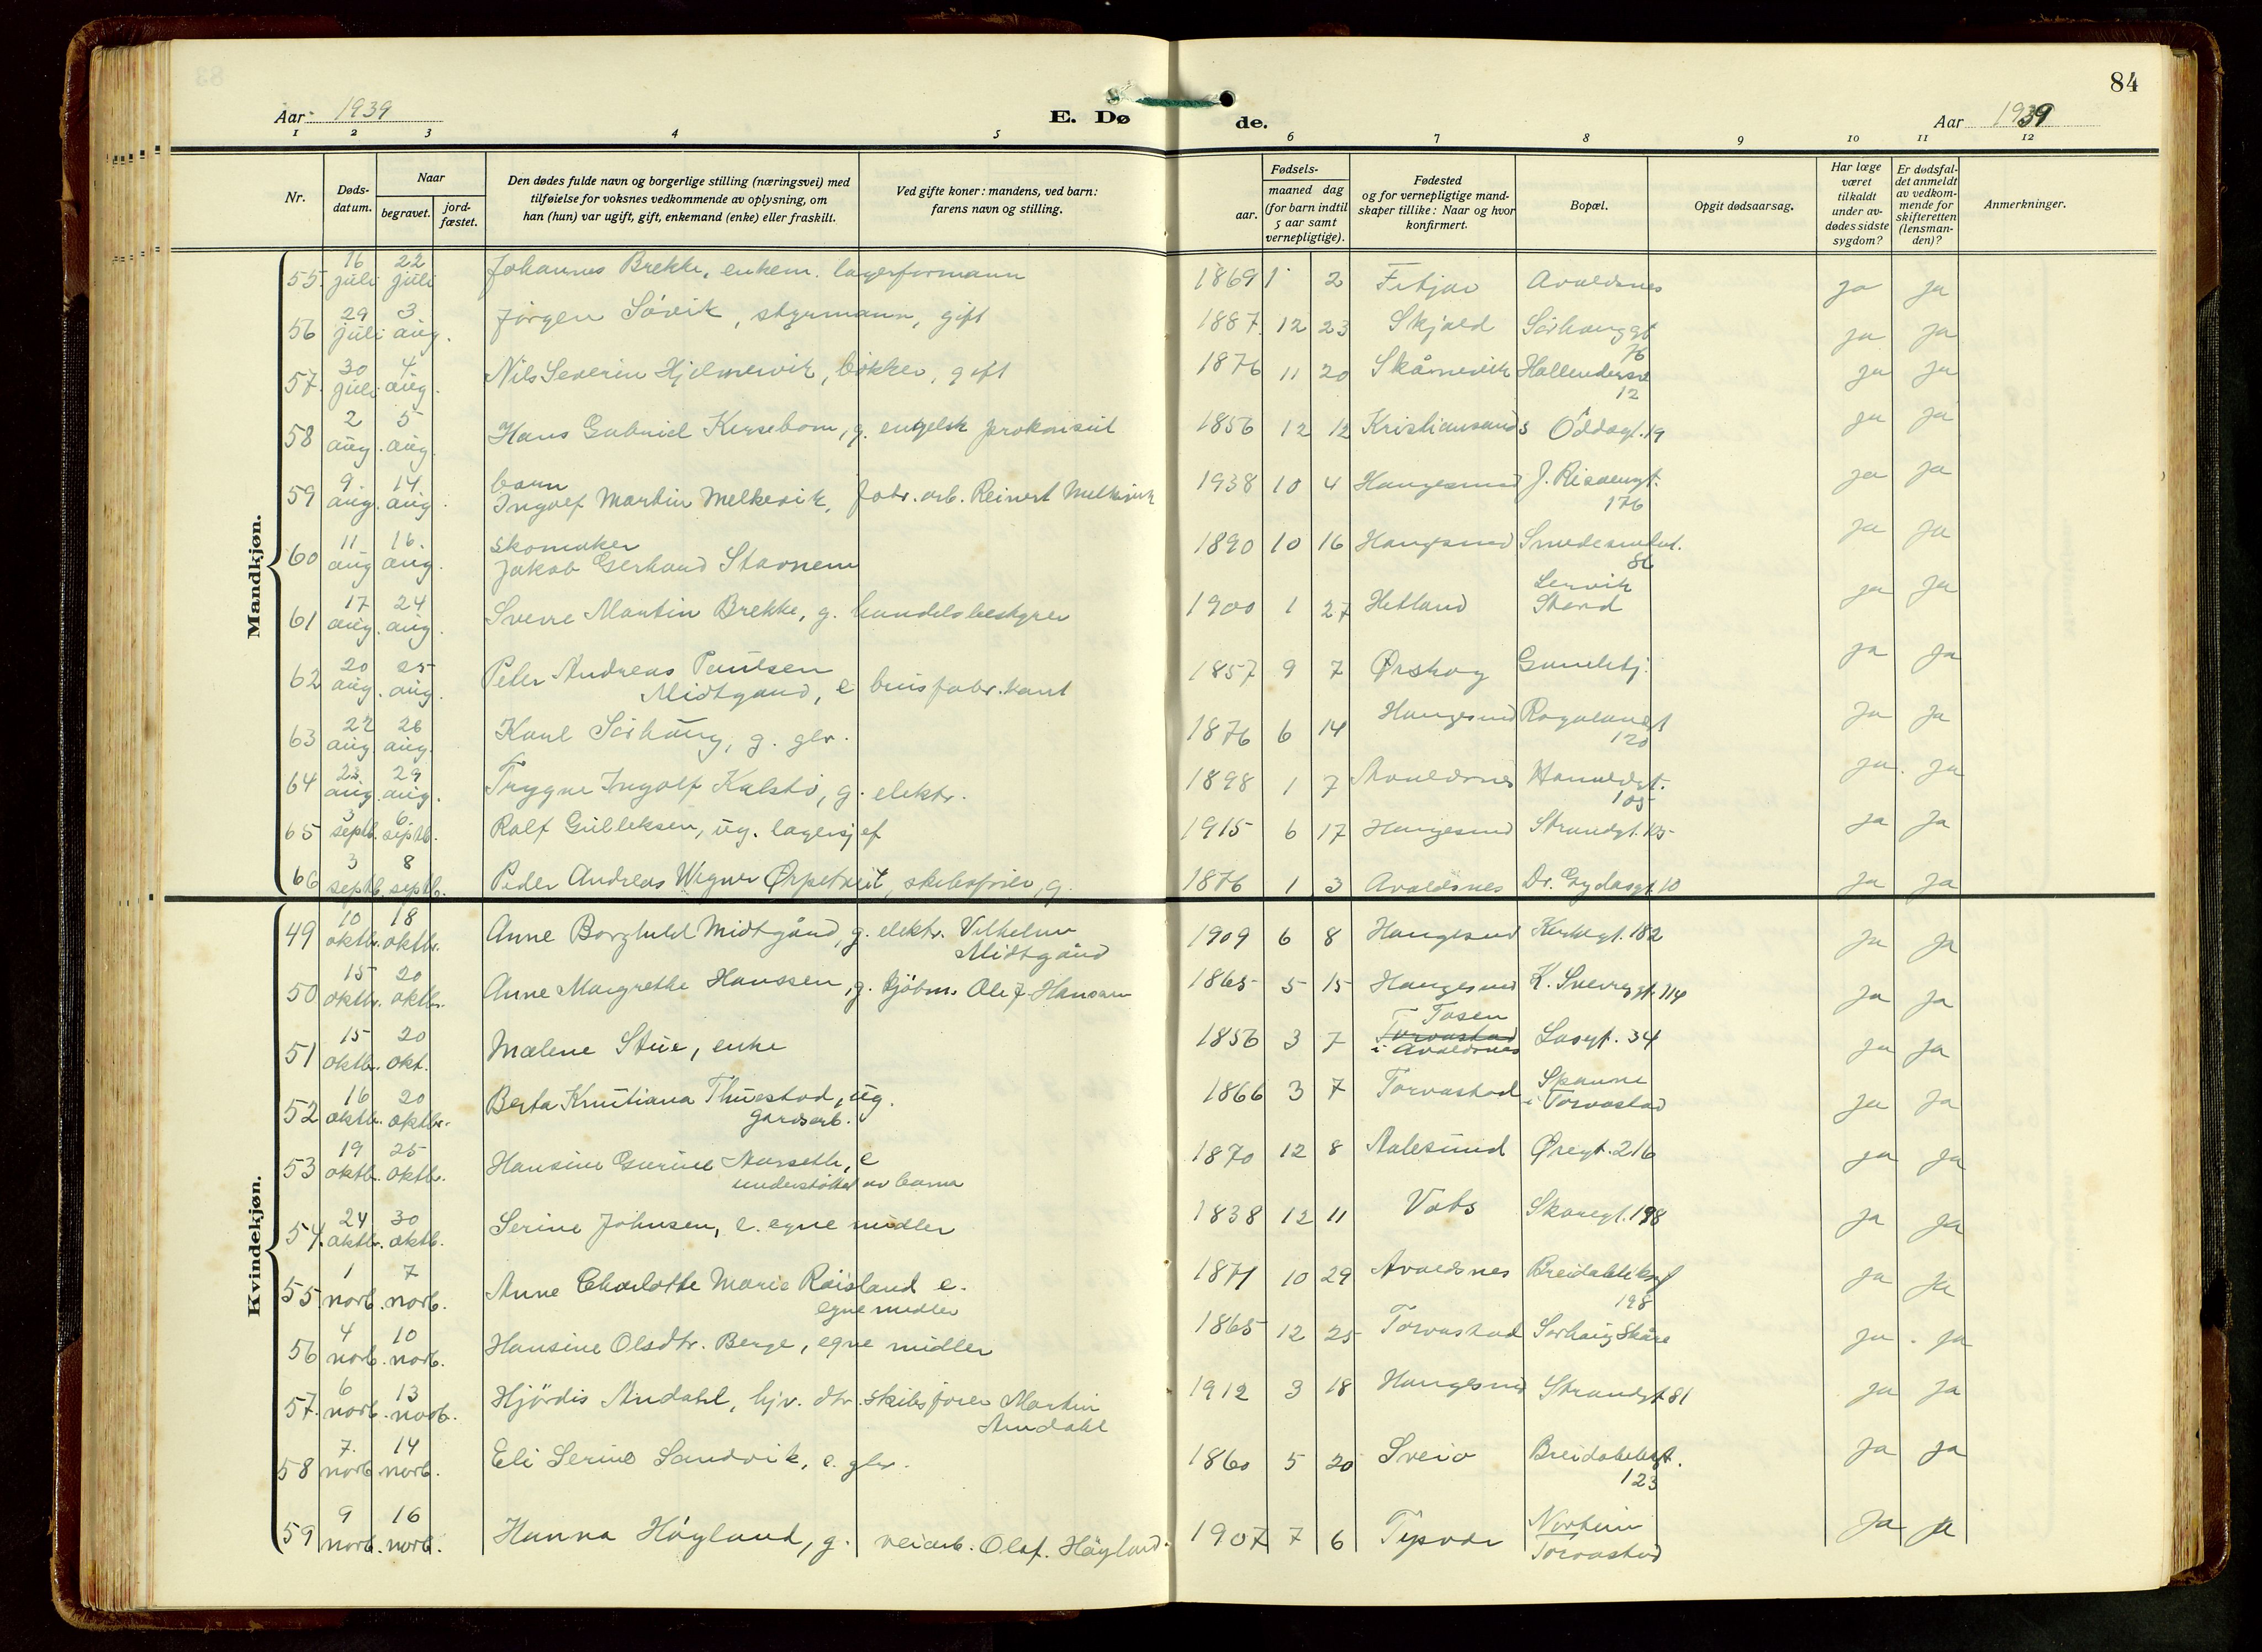 84
Aar 1939
E. Dø de.
Aar 1939
1 2 3 4 5 6 7 8 9 10 11 12
Nr.
Døds-datum.
Naar
begravet.
jord-fæstet.
Den dødes fulde navn og borgerlige stilling (næringsvei) med
tilføielse for voksnes vedkommende av oplysning, om
han (hun) var ugift, gift, enkemand (enke) eller fraskilt.
Ved gifte koner: mandens, ved barn:
farens navn og stilling.
Fødsels-
aar.
maaned dag
(for barn indtil
5 aar samt
vernepligtige).
Fødested
og for vernepligtige mand-
skaper tillike: Naar og hvor
konfirmert.
Bopæl.
Opgit dødsaarsag.
Har læge
været
tilkaldt
under av-
dødes sidste
sygdom?
Er dødsfal-
det anmeldt
av vedkom-
mende for
skifteretten
(lensman-
den)?
Anmerkninger.
Mandkjøn.
55. 16 juli 22 juli Johannes Brekke, enkem. lagerformann 1869 1 2 Fitjar Avaldsnes ja ja
56 29 juli 3 aug. Jørgen Søvik, styrmann, gift 1887. 12 23 Skjold Sørhauggt 76 ja ja
57. 30 juli 4 aug. Nils Severin Hjelmervik, bøkker, gift 1876 11 20 Skånevik 12 ja ja
58 2 aug. 5 aug. Hans Gabriel Kersebom, g. engelsk prokonsul 1856 12 12 Kristiansand S Oddagt. 19 ja ja
59 9. aug. 14. aug. barn
Ingolf Martin Melkevik, fabr. arb. Reinert Melkevik 1938 10 4 Haugesund J. Risøengt. 176 ja ja
60 11 aug 16. aug. skomaker
Jakob Gerhard Stavnem 1890 10 16 Haugesund 86 ja ja
61 17 aug. 24 aug. Sverre Martin Brekke, g. handelsbestyrer 1900 1 27 Hetland Lervik Stord ja ja
62 20 aug. 25 aug. Peter Andreas Paulsen
Midtgaard, e brusfabrikant 1857 9 7 Ørskog ja ja
63 22 aug 26 aug. Karl Sørhaug, g. glr. 1876 6 14 Haugesund Rogalandgt 120 ja ja
64 23. aug. 29 aug. Trygve Ingolf Kalstø, g. elektr. 1898 1 7 Avaldsnes Haraldgt. 105 ja ja
65 3 septb. 6. septb. Ralf Gulleksen, ug. lagersjef 1915 6 17 Haugesund Strandgt. 105 ja ja
66 3 septb. 8 septb. Peder Andreas Wegner Ørpetveit, skibsfører, g. 1876 1 3 Avaldsnes Dr. Gydasgt. 10 ja ja
Kvindekjøn.
49 10 oktbr. 18 oktbr. Anne Borghild Midtgård, g. elektr. Vilhelm
Midtgård 1909 6 8 Haugesund Kirkegt. 182 ja ja
50 15 oktbr. 20 oktbr. Anne Margrethe Hanssen, g. kjøbm. Ole J. Hansen 1865 5 15 Haugesund K. Sverresgt. 114 ja ja
51 15 oktbr. 20 okt. Malene Stue, enke 1856 3 7 Tosen
Torvastad
i Avaldsnes 34 ja ja
52 16 oktbr. 20 oktbr. Berta Knutiana Thuestad, ug.
gardsarb. 1866 3 7 Torvastad Spanne
i Torvastad ja ja
53 19 oktbr. 25 oktbr. Hansine Gurine Aarseth, e
understøttet av barna 1870 12 8 Aalesund Øregt. 216 ja ja
54. 24 oktbr. 30 oktb. Serine Johnsen, e. egne midler 1838 12 11 Vats Skaregt. 198 ja ja
55. 1 novb. 7 novb. Anne Charlotte Marie Røisland e.
egne midler 1871 10 29 Avaldsnes Breidablikgt 198 ja ja
56 4 novb. 10 novb. Hansine Olsdtr. Berge, egne midler 1865 12 25 Torvastad Sørhaug Skåre ja ja
57. 6 novb. 13 novb. Hjørdis Amdahl, hjv. dtr. skibsfører Martin
Amdahl 1912 3 18 Haugesund Strandgt 81 ja ja
58 7. novb. 14 novb. Eli Serine Sandvik, e. glr. 1860 5 20 Sveio Breidablikgt. 123 ja ja
59 9 novb. 16 novb. Hanna Høyland, g. veiarb. Olaf. Høyland 1907 7 6 Tysvær Norheim
Torvastad ja ja